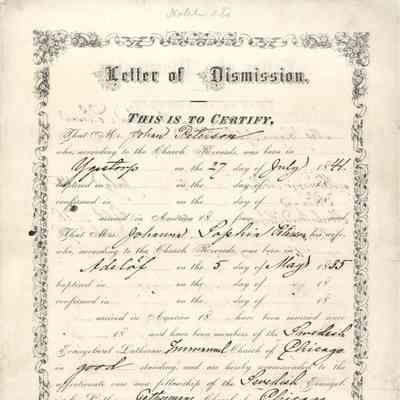 Letter of Dismission.
THIS IS TO CERTIFY,
That Mr. Johan Peterson
who, according to the Church Records, was born in
on the 27 day of July 1844.
baptized in on the day of 18
confirmed in on the day of 18
arrived in America 18 from and
That Mrs. Johanna Sophia his wife,
who, according to the Church Records, was born in
Adelöf on the 5 day of May 1855
baptized in on the day of 18
confirmed in on the day of 18
arrived in America 18 have been married since
18 and have been members of the Swedish
Evangelical Lutheran Immanuel Church of Chicago
in good standing, and are hereby commended to the
affectionate care and fellowship of the Swedish Evangel-
Lutheran Gethsemane Church of Chicago